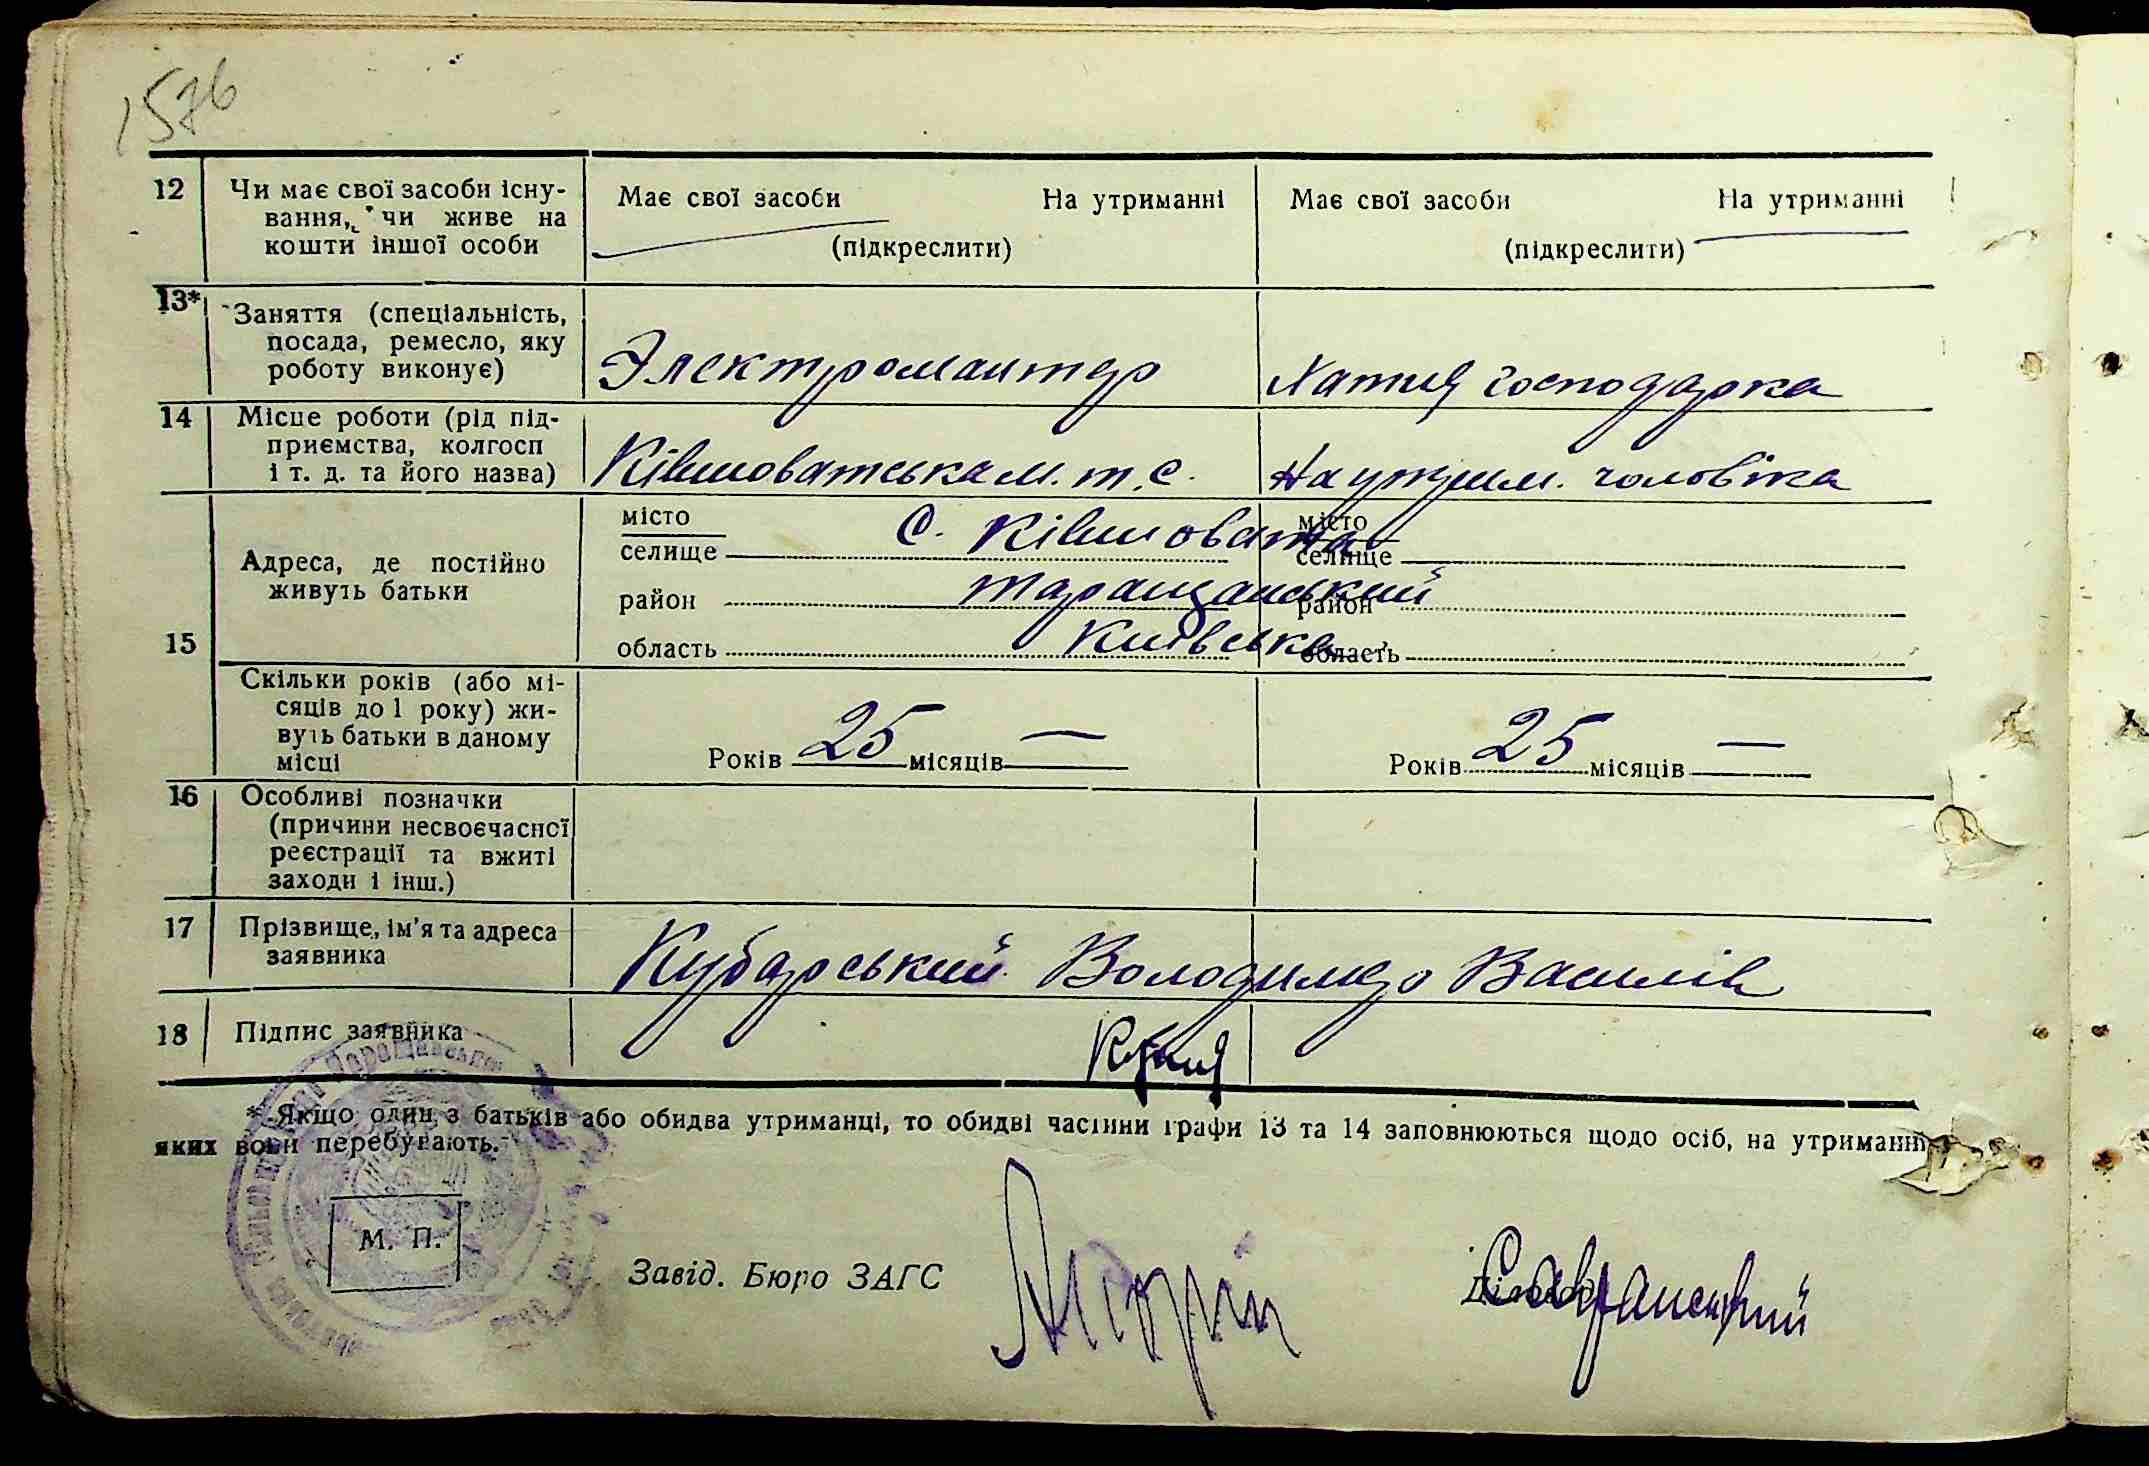 1576
12 Чи має свої засоби існу-
вання, чи живе на
кошти іншої особи
Має свої засоби На утриманні
(підкреслити)
Має свої засоби На утриманні
(підкреслити)
13* Заняття (спеціальність,
посада, ремесло, яку
роботу виконує)
Электромантер
Хатня господарка
14 Місце роботи (рід під-
приємства, колгосп
і т. д. та його назва)
Ківшоватська м.т.с.
На утрим. чоловіка
15 Адреса, де постійно
живуть батьки
місто
селище С. Ківшовата
район таращанський
область Київська
місто
селище
район
область
Скільки років (або мі-
сяців до 1 року) жи-
вуть батьки в даному
місці
Років 25 місяців —
Років 25 місяців —
16 Особливі позначки
(причини несвоєчасної
реєстрації та вжиті
заходи і інш.)
17 Прізвище, ім'я та адреса
заявника
Кубарський Володимер Василів
18 Підпис заявника
* Якщо один з батьків або обидва утриманці, то обидві частини графи 13 та 14 заповнюються щодо осіб, на утриманні
яких вони перебувають.
М. П.
Завід. Бюро ЗАГС